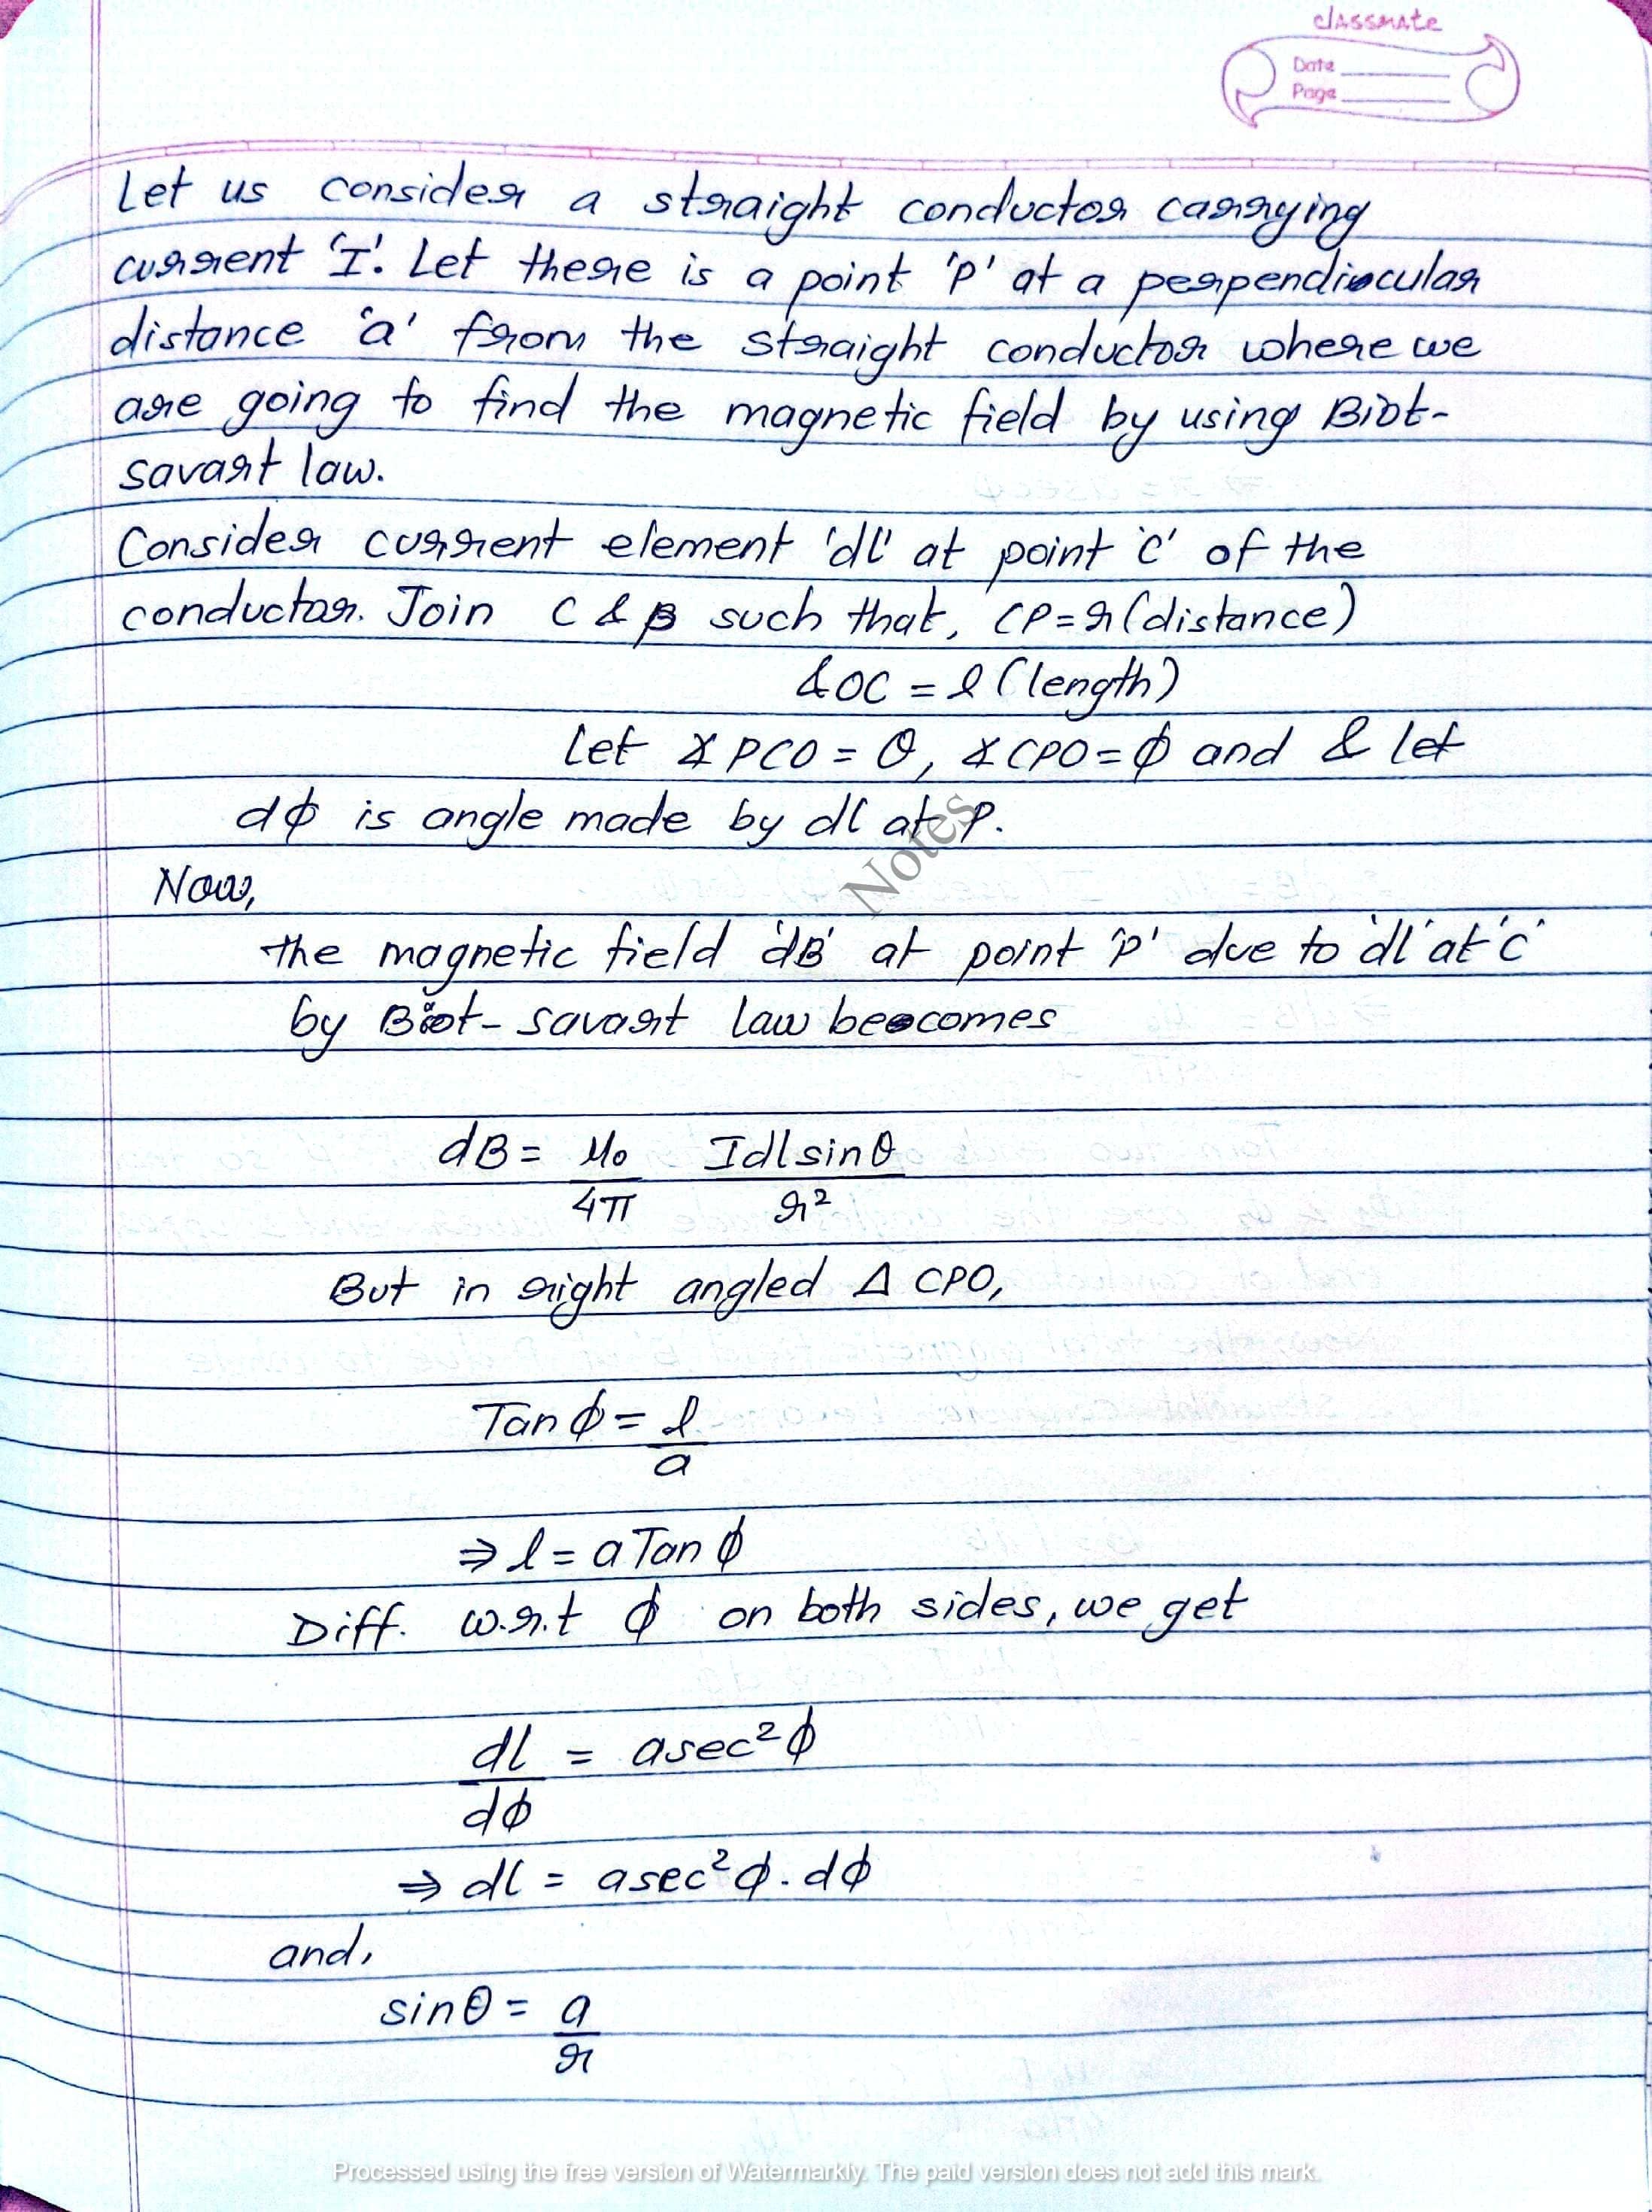 classmate
Date
Page
Let us consider a straight conductor carrying
current 'I'. Let there is a point 'P' at a perpendicular
distance 'a' from the straight conductor where we
are going to find the magnetic field by using Biot-
savart law.
Consider current element 'dl' at point 'C' of the
conductor. Join C & P such that, CP = r (distance)
& OC = l (length)
Let ∡PCO = θ, ∡CPO = ϕ and & let
dϕ is angle made by dl at P.
Notes
Now,
the magnetic field 'dB' at point 'P' due to 'dl' at 'C'
by Biot-savart law becomes
dB = μ₀/4π Idlsinθ/r²
But in right angled Δ CPO,
Tan ϕ = l/a
⇒ l = a Tan ϕ
Diff. w.r.t ϕ on both sides, we get
dl/dϕ = asec²ϕ
⇒ dl = asec²ϕ.dϕ
and,
sinθ = a/r
Processed using the free version of Watermarkly. The paid version does not add this mark.